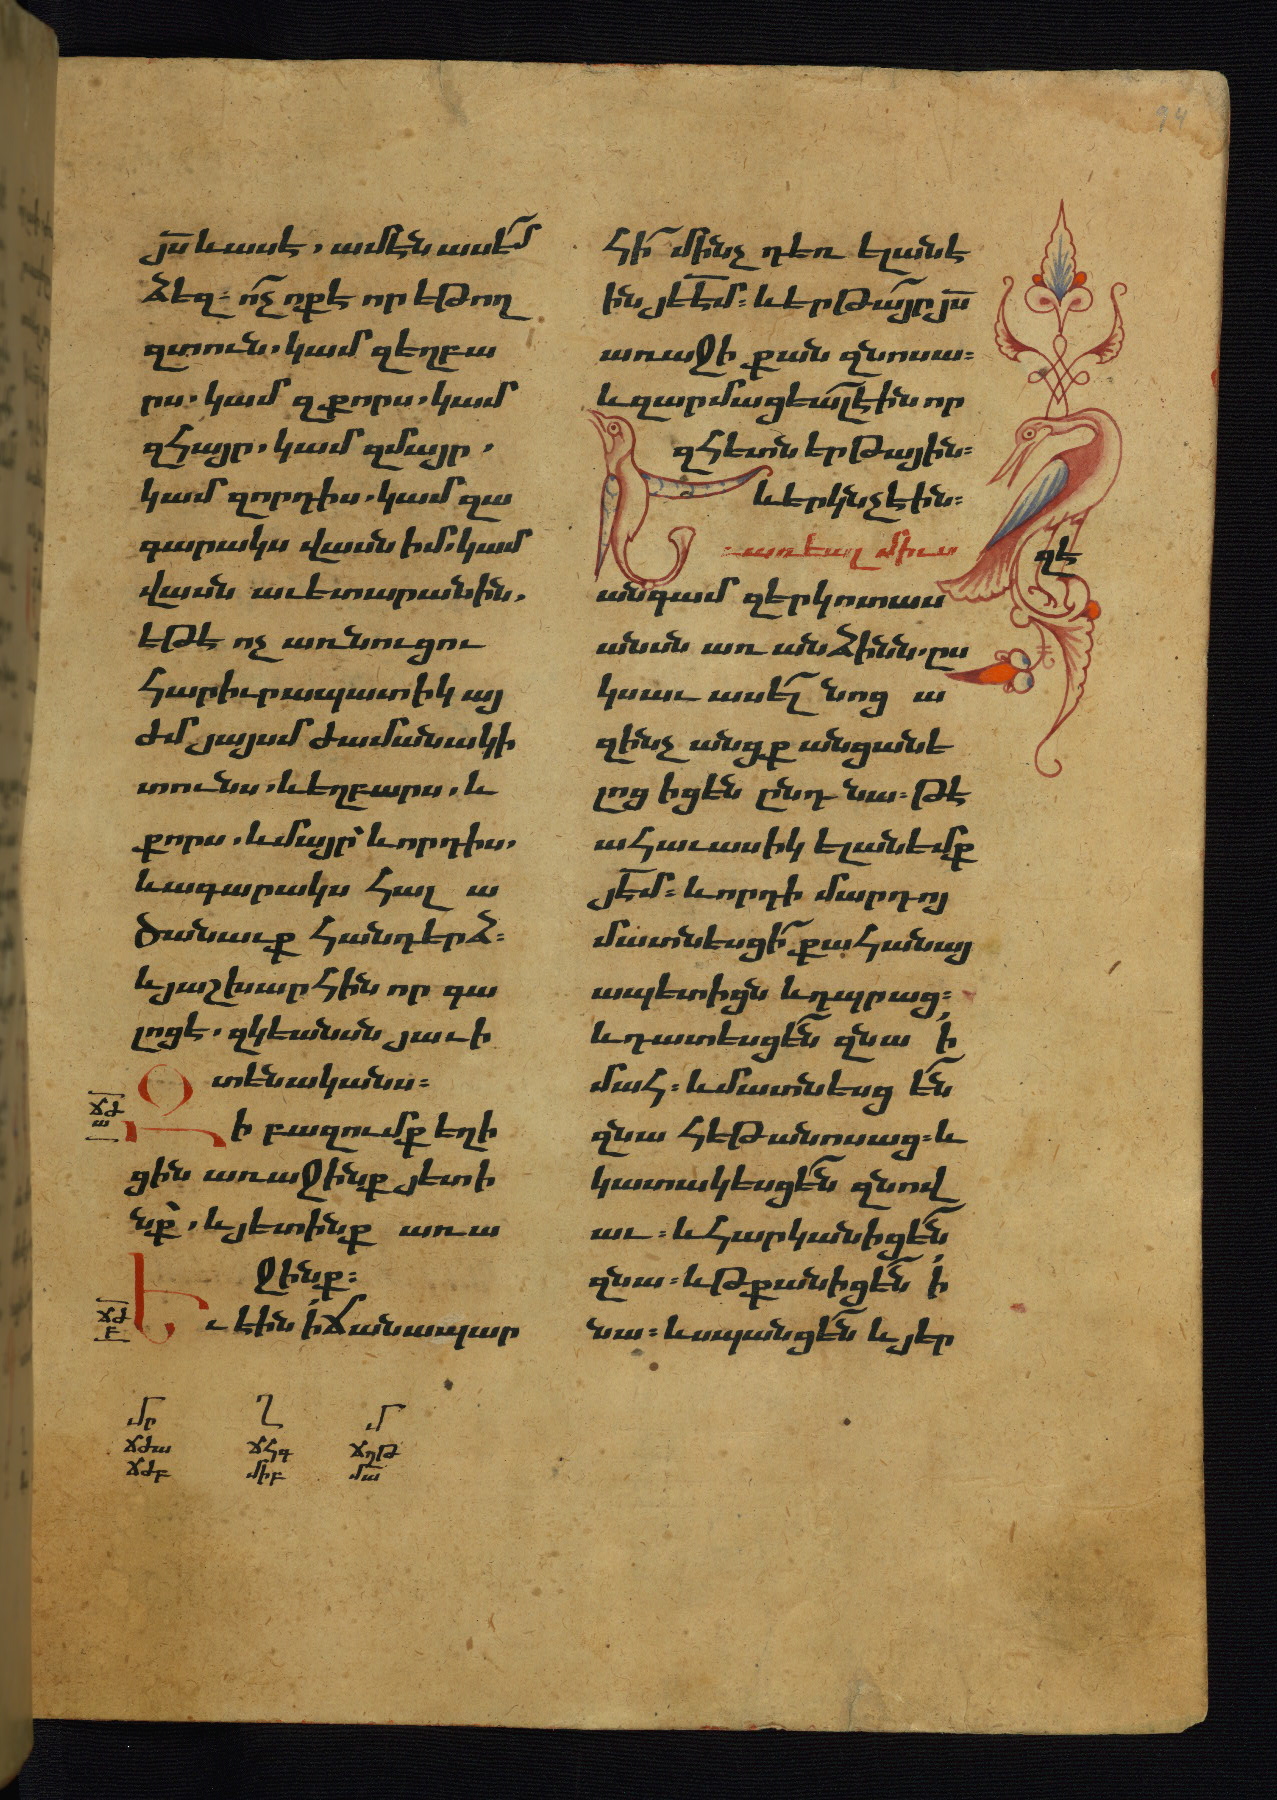 94
յս̅ և ասէ, ամէն ասե՞մ
ձեզ. ո՞չ ոք է որ եթող
զտուն. կամ զեղբա
րս. կամ զքորս. կամ
զհայր. կամ զմայր,
կամ զորդիս. կամ զա
գարակս վասն իմ. կամ
վասն աւետարանին,
եթէ ոչ առնուցու
հարիւրապատիկ այ
ժմ յայսմ ժամանակի
տունս. և եղբարս. և
քորս. և մայր՝ և որդիս.
և ագարակս հալ ա
ծանաւք հանդերձ.
և յաշխարհին որ գա
լոցէ. զկեանսն յաւի
տենականս.
ՃԺԱ
Զի բազումք եղի
ցին առաջինք յետի
նք՝. և յետինք առա
ջինք.
ՃԺԲ
Եւ էին ի ճանապար
հի՞ մինչ դեռ ելանէ
ին յե̅ե̅մ. և երթա՞յր յս̅
առաջի քան զնոսա.
և զարմացեալէին որ
զհետն երթային.
և երկնչէին.
Եւ առեալ միւս
զե
անգամ զերկոտաս
անսն առ անձինն. ըս
կսաւ ասե՞լ նոց ա
զինչ անցք անցանե
լոց իցեն ընդ նա. թէ
ահաւասիկ ելանեմք
յե̅մ. և որդի մարդոյ
մատնեսցի՞ քահանայ
ապետիցն և դպրաց.
և դատեսցե՞ն զնա ի՛
մահ. և մատնեսց ե՞ն
զնա հեթանոսաց. և
կատակեսցե՞ն զնով
աւ. և հարկանիցե՞ն
զնա. և թքանիցե՞ն ի՛
նա. և սպանցե՞ն և յեր
մր Ղ մ
ՃԺԱ ՃՀԳ ՃՂԹ
ՃԺԲ միբ մա